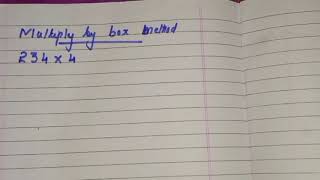 Multiply by box method
234 x 4